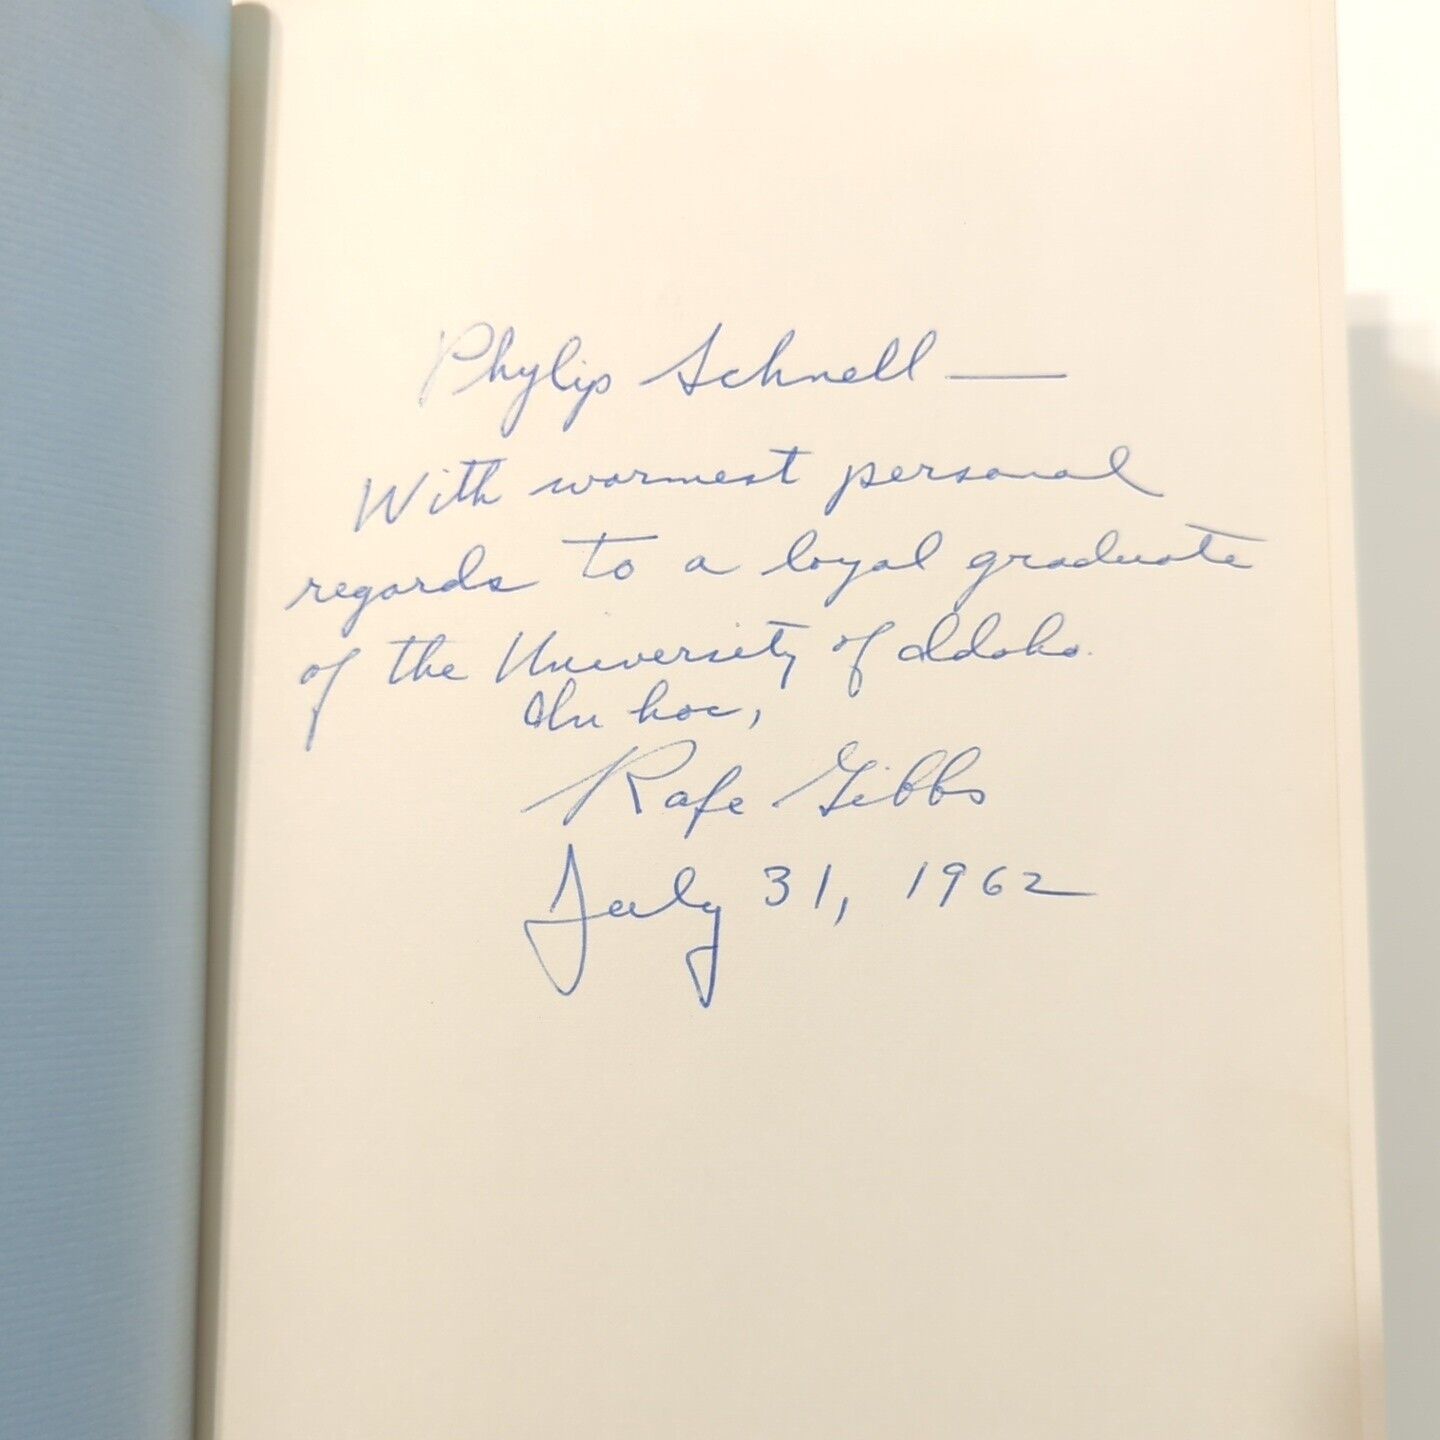 Phylip Schnell —
With warmest personal
regards to a loyal graduate
of the University of Idaho.
In hoc,
Rafe Gibbs
July 31, 1962